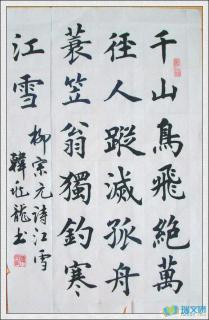 千山鳥飛絕萬
徑人蹤滅孤舟
蓑笠翁獨釣寒
江雪
柳宗元詩江雪
韓 龍書
瑞文网